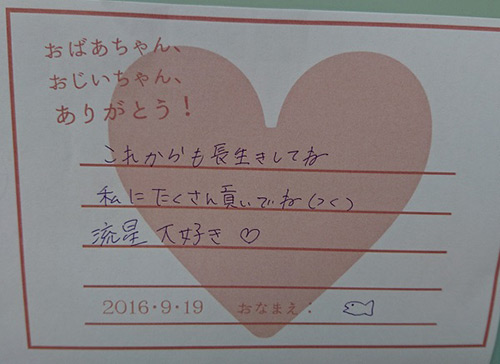 おばあちゃん、
おじいちゃん、
ありがとう！
これからも長生きしてね
私にたくさん貢いでね(つく)
流星 大好き ♡
2016・9・19 おなまえ：